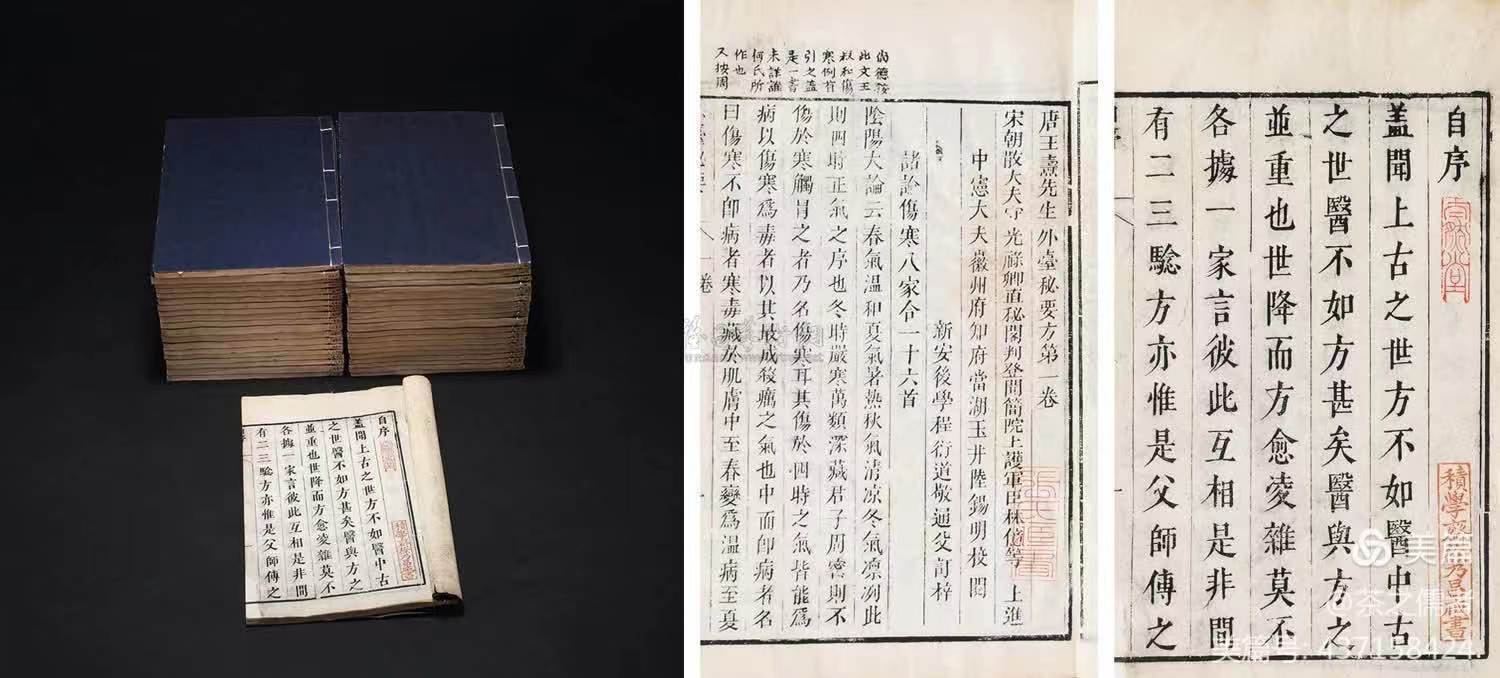 自序
蓋聞上古之世方不如醫中古
之世醫不如方甚矣醫與方之
並重也世降而方愈淩雜莫不
各據一家言彼此互相是非間
有二三驗方亦惟是父師傳之
尚德按
此文王
叔和傷
寒例有
引之蓋
是一書
未詳誰
何氏所
作也
又按周
唐王燾先生外臺秘要方第一卷
宋朝散大夫守光祿卿直秘閣判登聞簡院上護軍臣林億等上進
中憲大夫徽州府知府當湖玉井陸錫明校閱
新安後學程衍道敬通父訂梓
諸論傷寒八家合一十六首
陰陽大論云春氣溫和夏氣暑熱秋氣清凉冬氣凛冽此
則四時正氣之序也冬時嚴寒萬類深藏君子周密則不
傷於寒觸冒之者乃名傷寒耳其傷於四時之氣皆能爲
病以傷寒爲毒者以其最成殺癘之氣也中而卽病者名
曰傷寒不卽病者寒毒藏於肌膚中至春變爲溫病至夏
一卷
自序
蓋聞上古之世方不如醫中古
之世醫不如方甚矣醫與方之
並重也世降而方愈淩雜莫不
各據一家言彼此互相是非間
有二三驗方亦惟是父師傳之
美篇
@茶之儒者
美篇号: 437158424